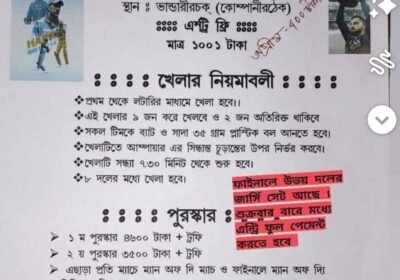 স্থান : ভান্ডারীরচক্ (কোম্পানীরঠেক)
এন্ট্রি ফ্রি
মাত্র ১০০১ টাকা
খেলার নিয়মাবলী
❖প্রথম থেকে লটারির মাধ্যমে খেলা হবে।।
❖এই খেলার ৯ জন করে খেলবে ও ২ জন অতিরিক্ত থাকিবে
❖সকল টিমকে ব্যাট ও সাদা ৩৫ গ্রাম প্লাস্টিক বল আনতে হবে।
❖খেলাটিতে আম্পায়ার এর সিদ্ধান্ত চূড়ান্তের উপর নির্ভর করবে।
❖খেলাটি সন্ধ্যা ৭.৩০ মিনিট থেকে শুরু হবে।
❖৮ দলের মধ্যে খেলা হবে।
ফাইনালে উভয় দলের
জার্সি সেট আছে।
শুক্রবার বারে মধ্যে
এন্ট্রি ফুল পেমেন্ট
করতে হবে
পুরস্কার
❖ ১ ম পুরস্কার ৪৬০০ টাকা + ট্রফি
❖ ২ য় পুরস্কার ৩৫০০ টাকা + ট্রফি
❖ এছাড়া প্রতি ম্যাচে ম্যান অফ দি ম্যাচ ও ফাইনালে ম্যান অফ দ্যি